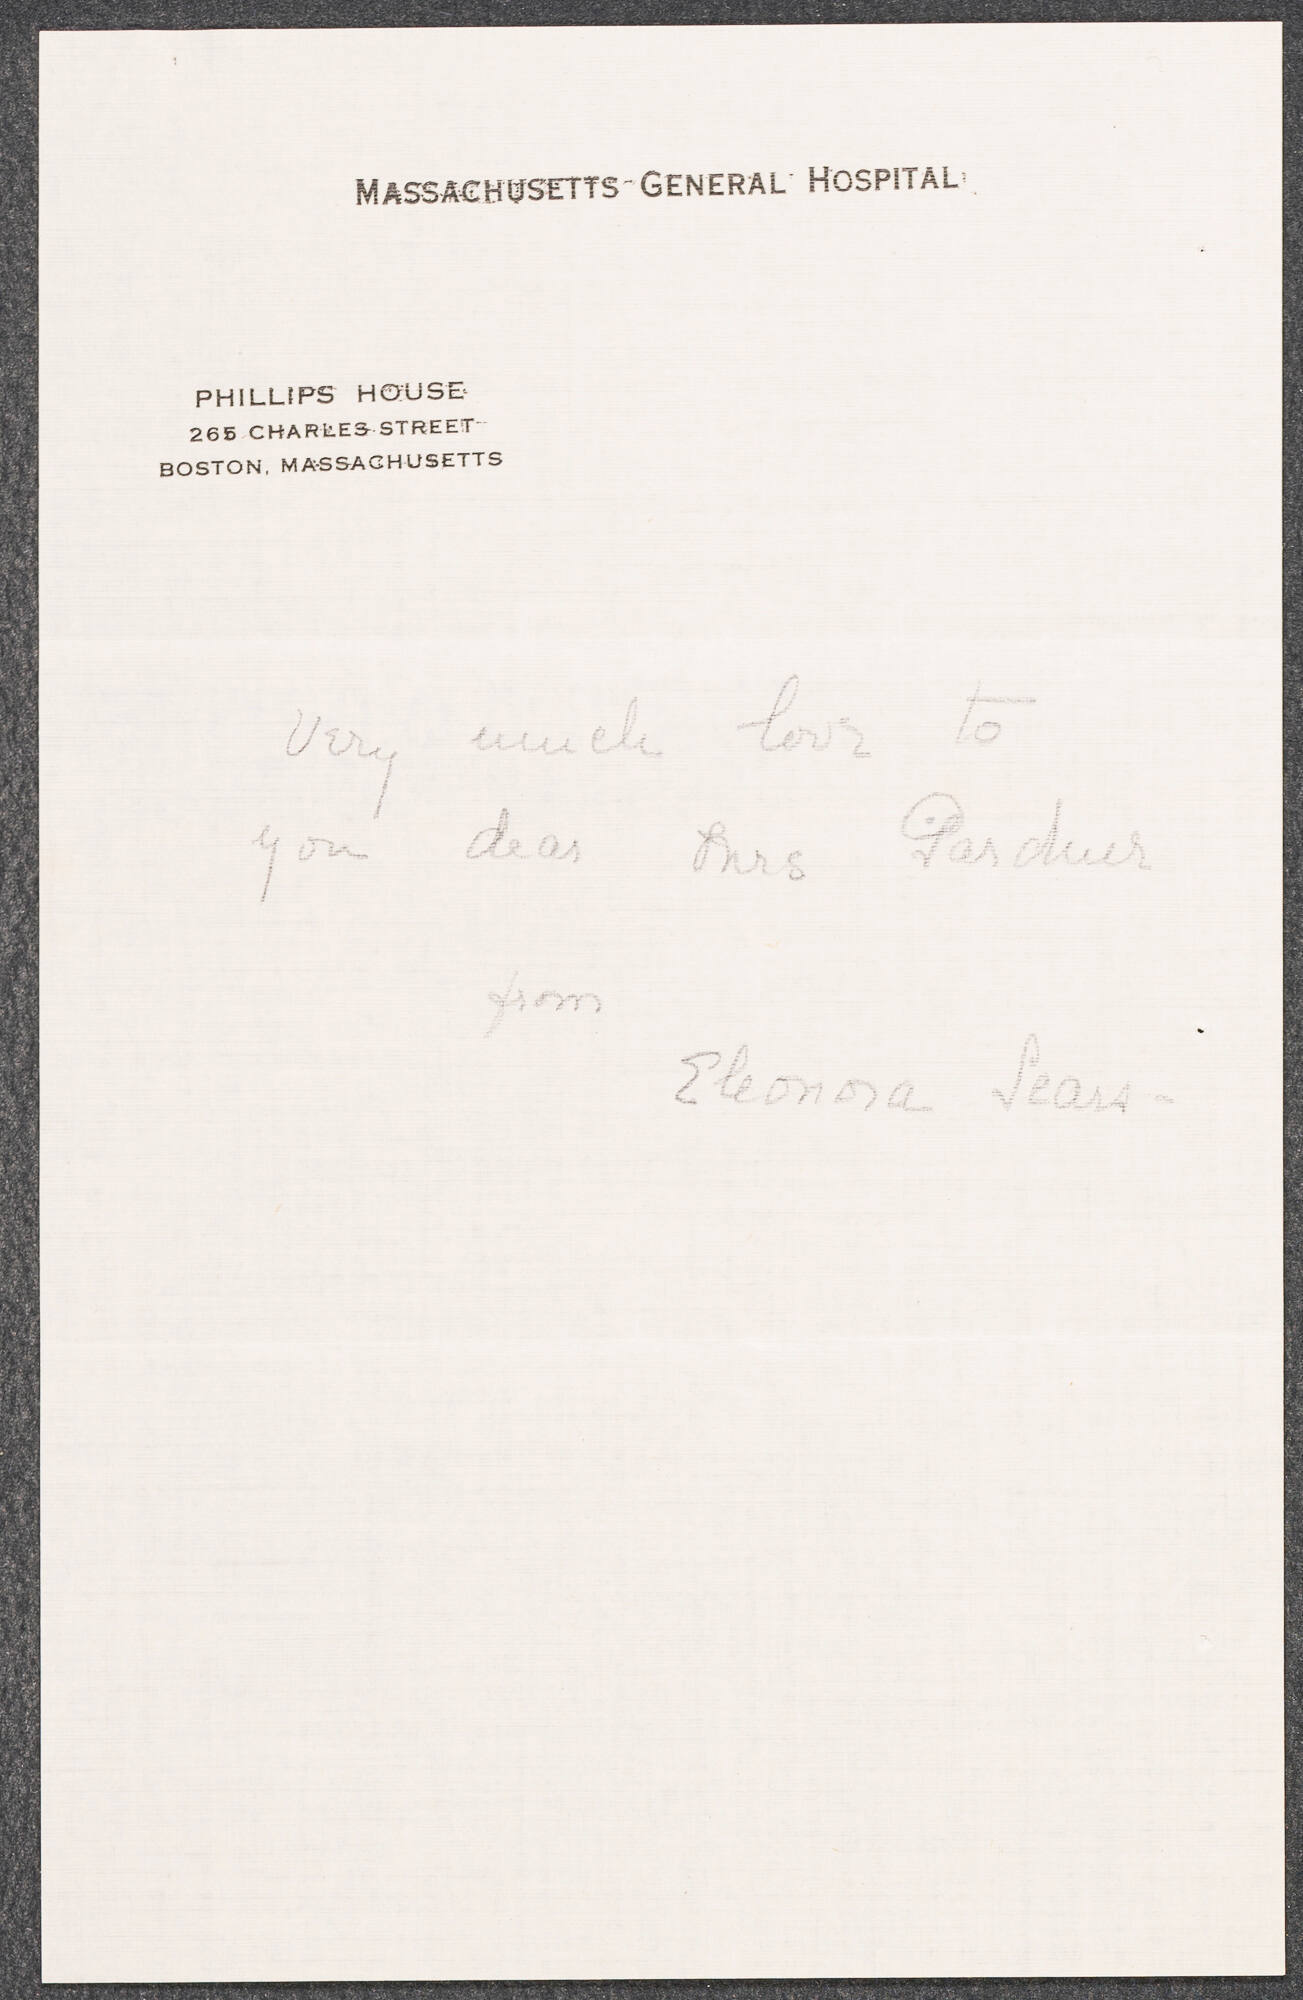 MASSACHUSETTS GENERAL HOSPITAL
PHILLIPS HOUSE
265 CHARLES STREET
BOSTON, MASSACHUSETTS
Very much love to
you dear Mrs Gardner
from
Eleonora Sears -